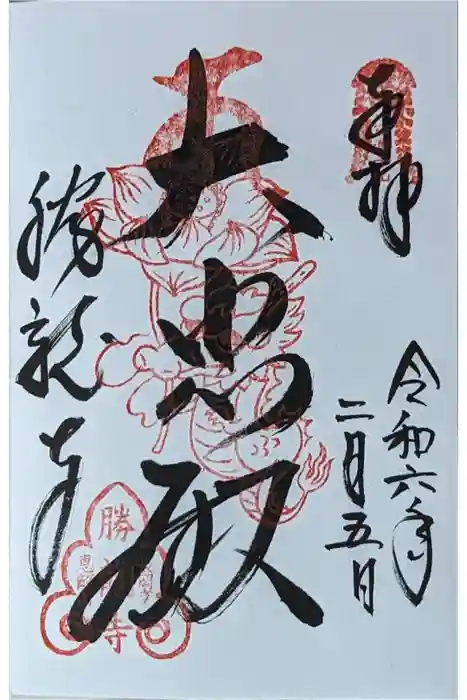 奉拝
令和六年
二月五日
大悲殿
勝龍寺
勝龍寺